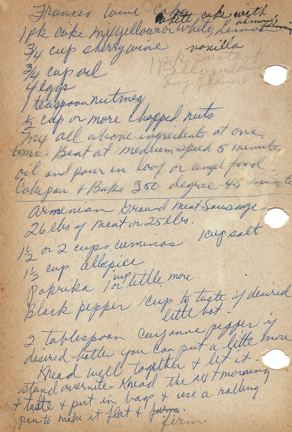 Frances Wine Cake
white cake with almond flavoring
1 pk cake mix yellow or white lemon
3/4 cup sherry wine vanilla
3/4 cup oil
4 eggs
1 teaspoon nutmeg
1/2 cup or more chopped nuts
Mix all above ingredients at one
time. Beat at medium speed 5 minutes
oil and pour in loaf or angel food
cake pan & Bake 350 degree 45 minutes
Armenian Ground Meat Sausage
26 lbs of meat or 25 lbs.
1 1/2 or 2 cups cuminos 1 cup salt
1 1/2 cup allspice
Paprika 1 cup or little more
Black pepper 1 cup to taste if desired
little hot
2 Tablespoon Cayanne pepper if
desired hotter you can put a little more
Knead well together & let it
stand overnite Knead the next morning
& taste & put in bags & use a rolling
pin to make it flat & firm.
firm.